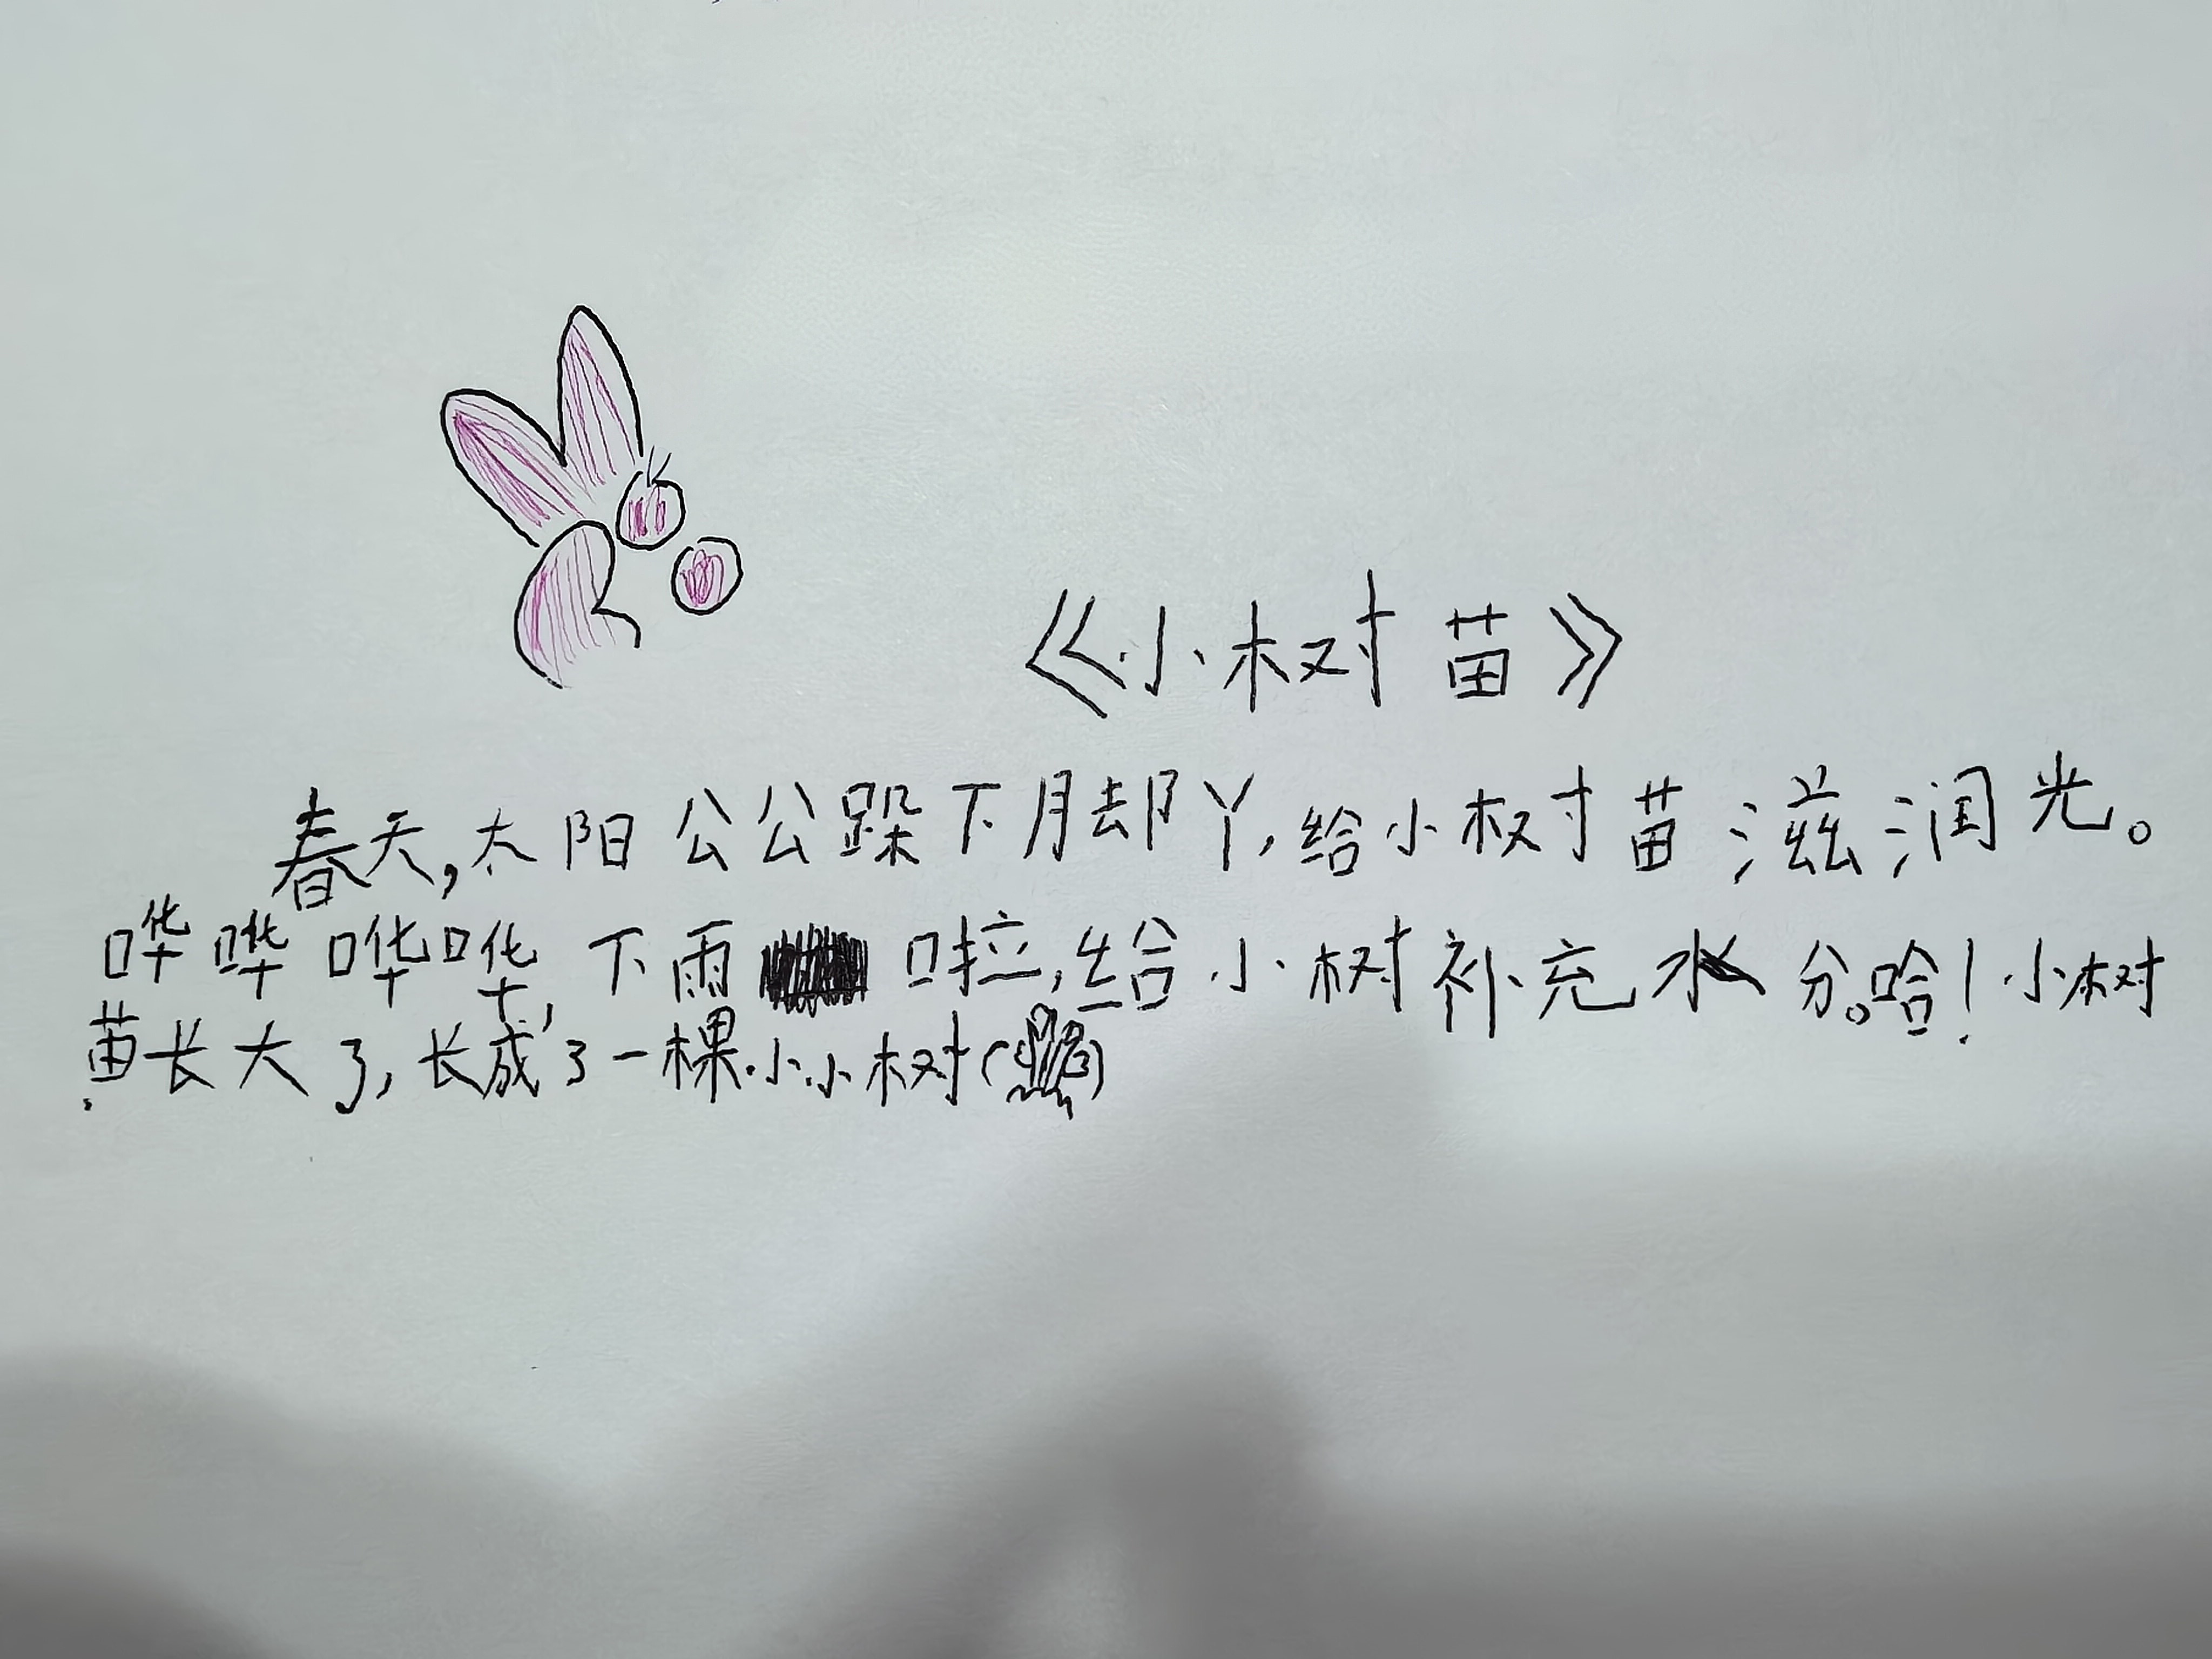 《小树苗》
春天,太阳公公跺下脚丫,给小树苗滋润光。
哗哗哗哗,下雨啦,给小树补充水分。哈!小树
苗长大了,长成了一棵小小树()